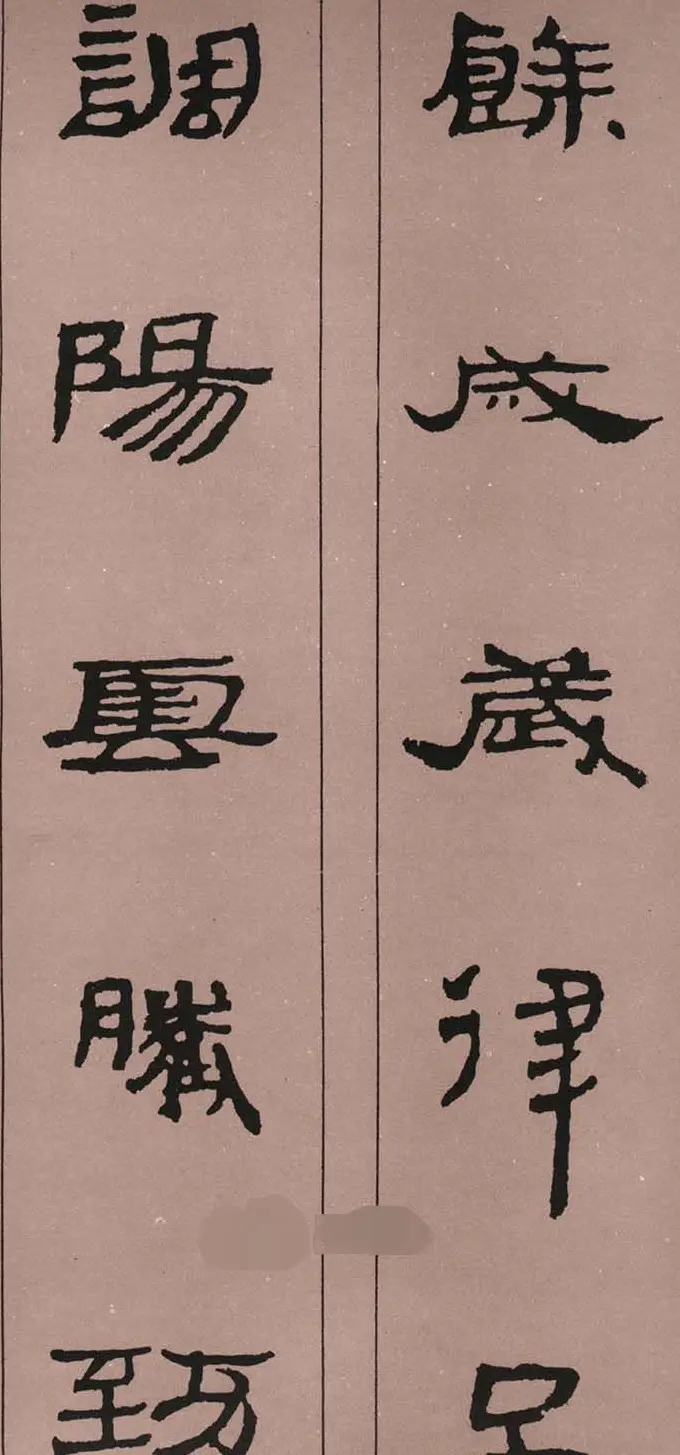 餘成歲律呂
調陽雲騰致